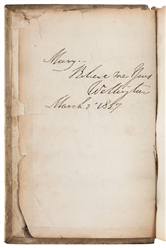 Mary—
Believe me Yours
Wellington
March 2 1847